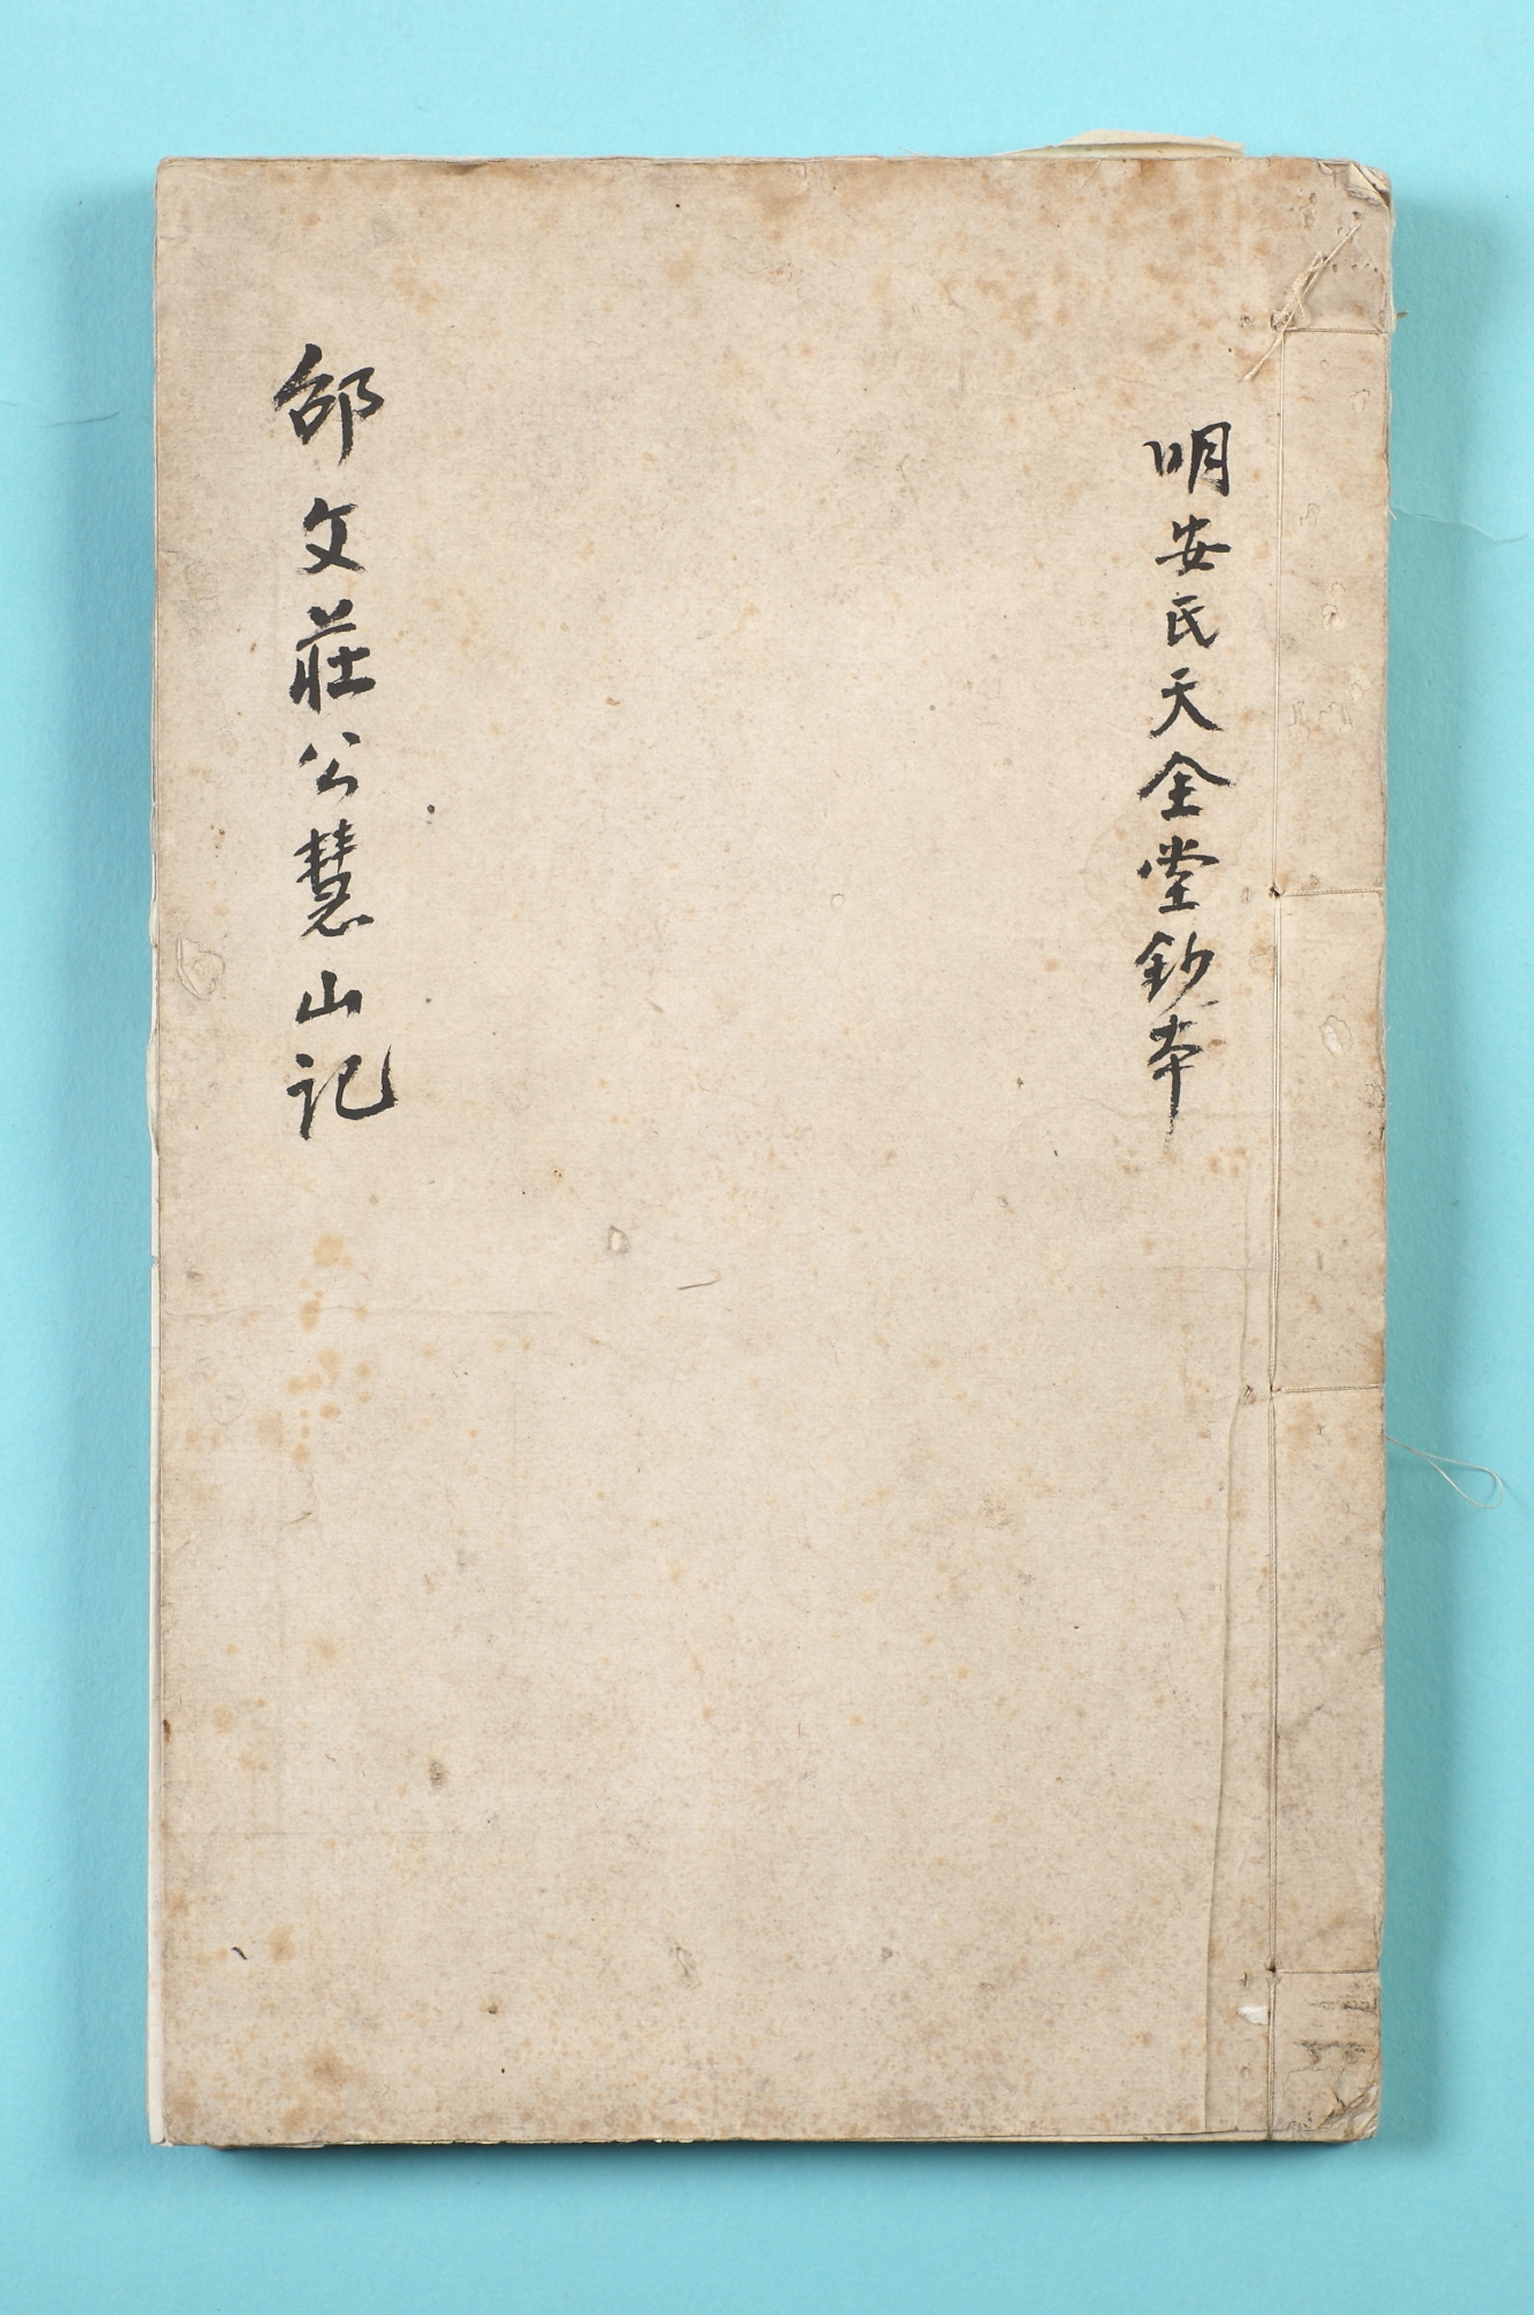 明安氏天全堂鈔本
邵文莊公慧山記